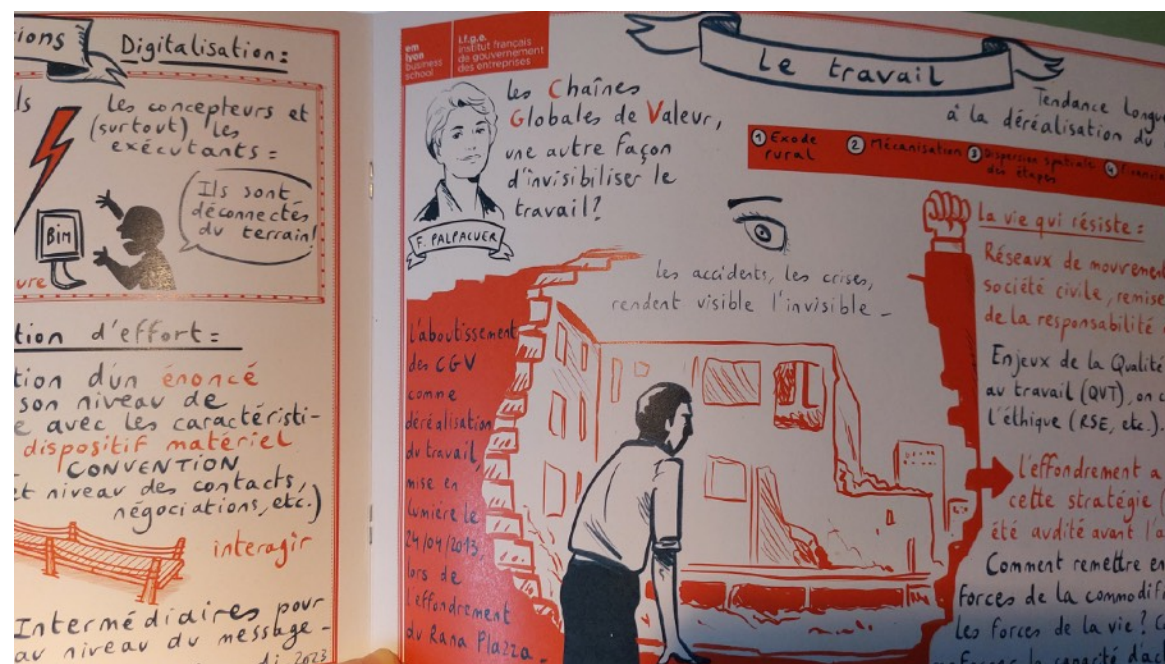 ions
Digitalisation:
ls
Les concepteurs et
(surtout) les
exécutants =
Ils sont
déconnectés
du terrain!
BIM
ure
tion d'effort =
tion d'un énoncé
son niveau de
e avec les caractéristi-
dispositif matériel
CONVENTION
et niveau des contacts,
négociations, etc.)
interagir
Intermédiaires pour
au niveau du message -
2023
em
lyon
business
school
i.f.g.e.
institut français
de gouvernement
des entreprises
Le travail
Les Chaînes
Globales de Valeur,
une autre façon
d'invisibiliser le
travail?
F. PALPACUER
Tendance Longue
à la déréalisation du
1 Exode
rural
2 Mécanisation
3 Dispersion spatiale
des étapes
4
Les accidents, les crises,
rendent visible l'invisible -
L'aboutissement
des CGV
comme
déréalisation
du travail,
mise en
lumière le
24/04/2013,
lors de
l'effondrement
du Rana Plazza -
La vie qui résiste =
Réseaux de mouvement
société civile, remise
de la responsabilité
Enjeux de la Qualité
au travail (QVT), on
l'éthique (RSE, etc.).
L'effondrement a
cette stratégie (
été audité avant l'a
Comment remettre en
forces de la commodif
Les forces de la vie? C
la capacité d'ac